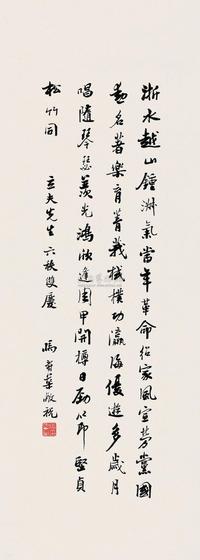 浙水越山鍾淋氣當年革命紹家風宣勞黨國
勳名著樂育菁莪棫樸功瀛海優遊多歲月
唱隨琴瑟羨光鴻欣逢周甲開樽日勁節堅貞
松竹同
立夫先生六秩雙慶
馮
敬祝